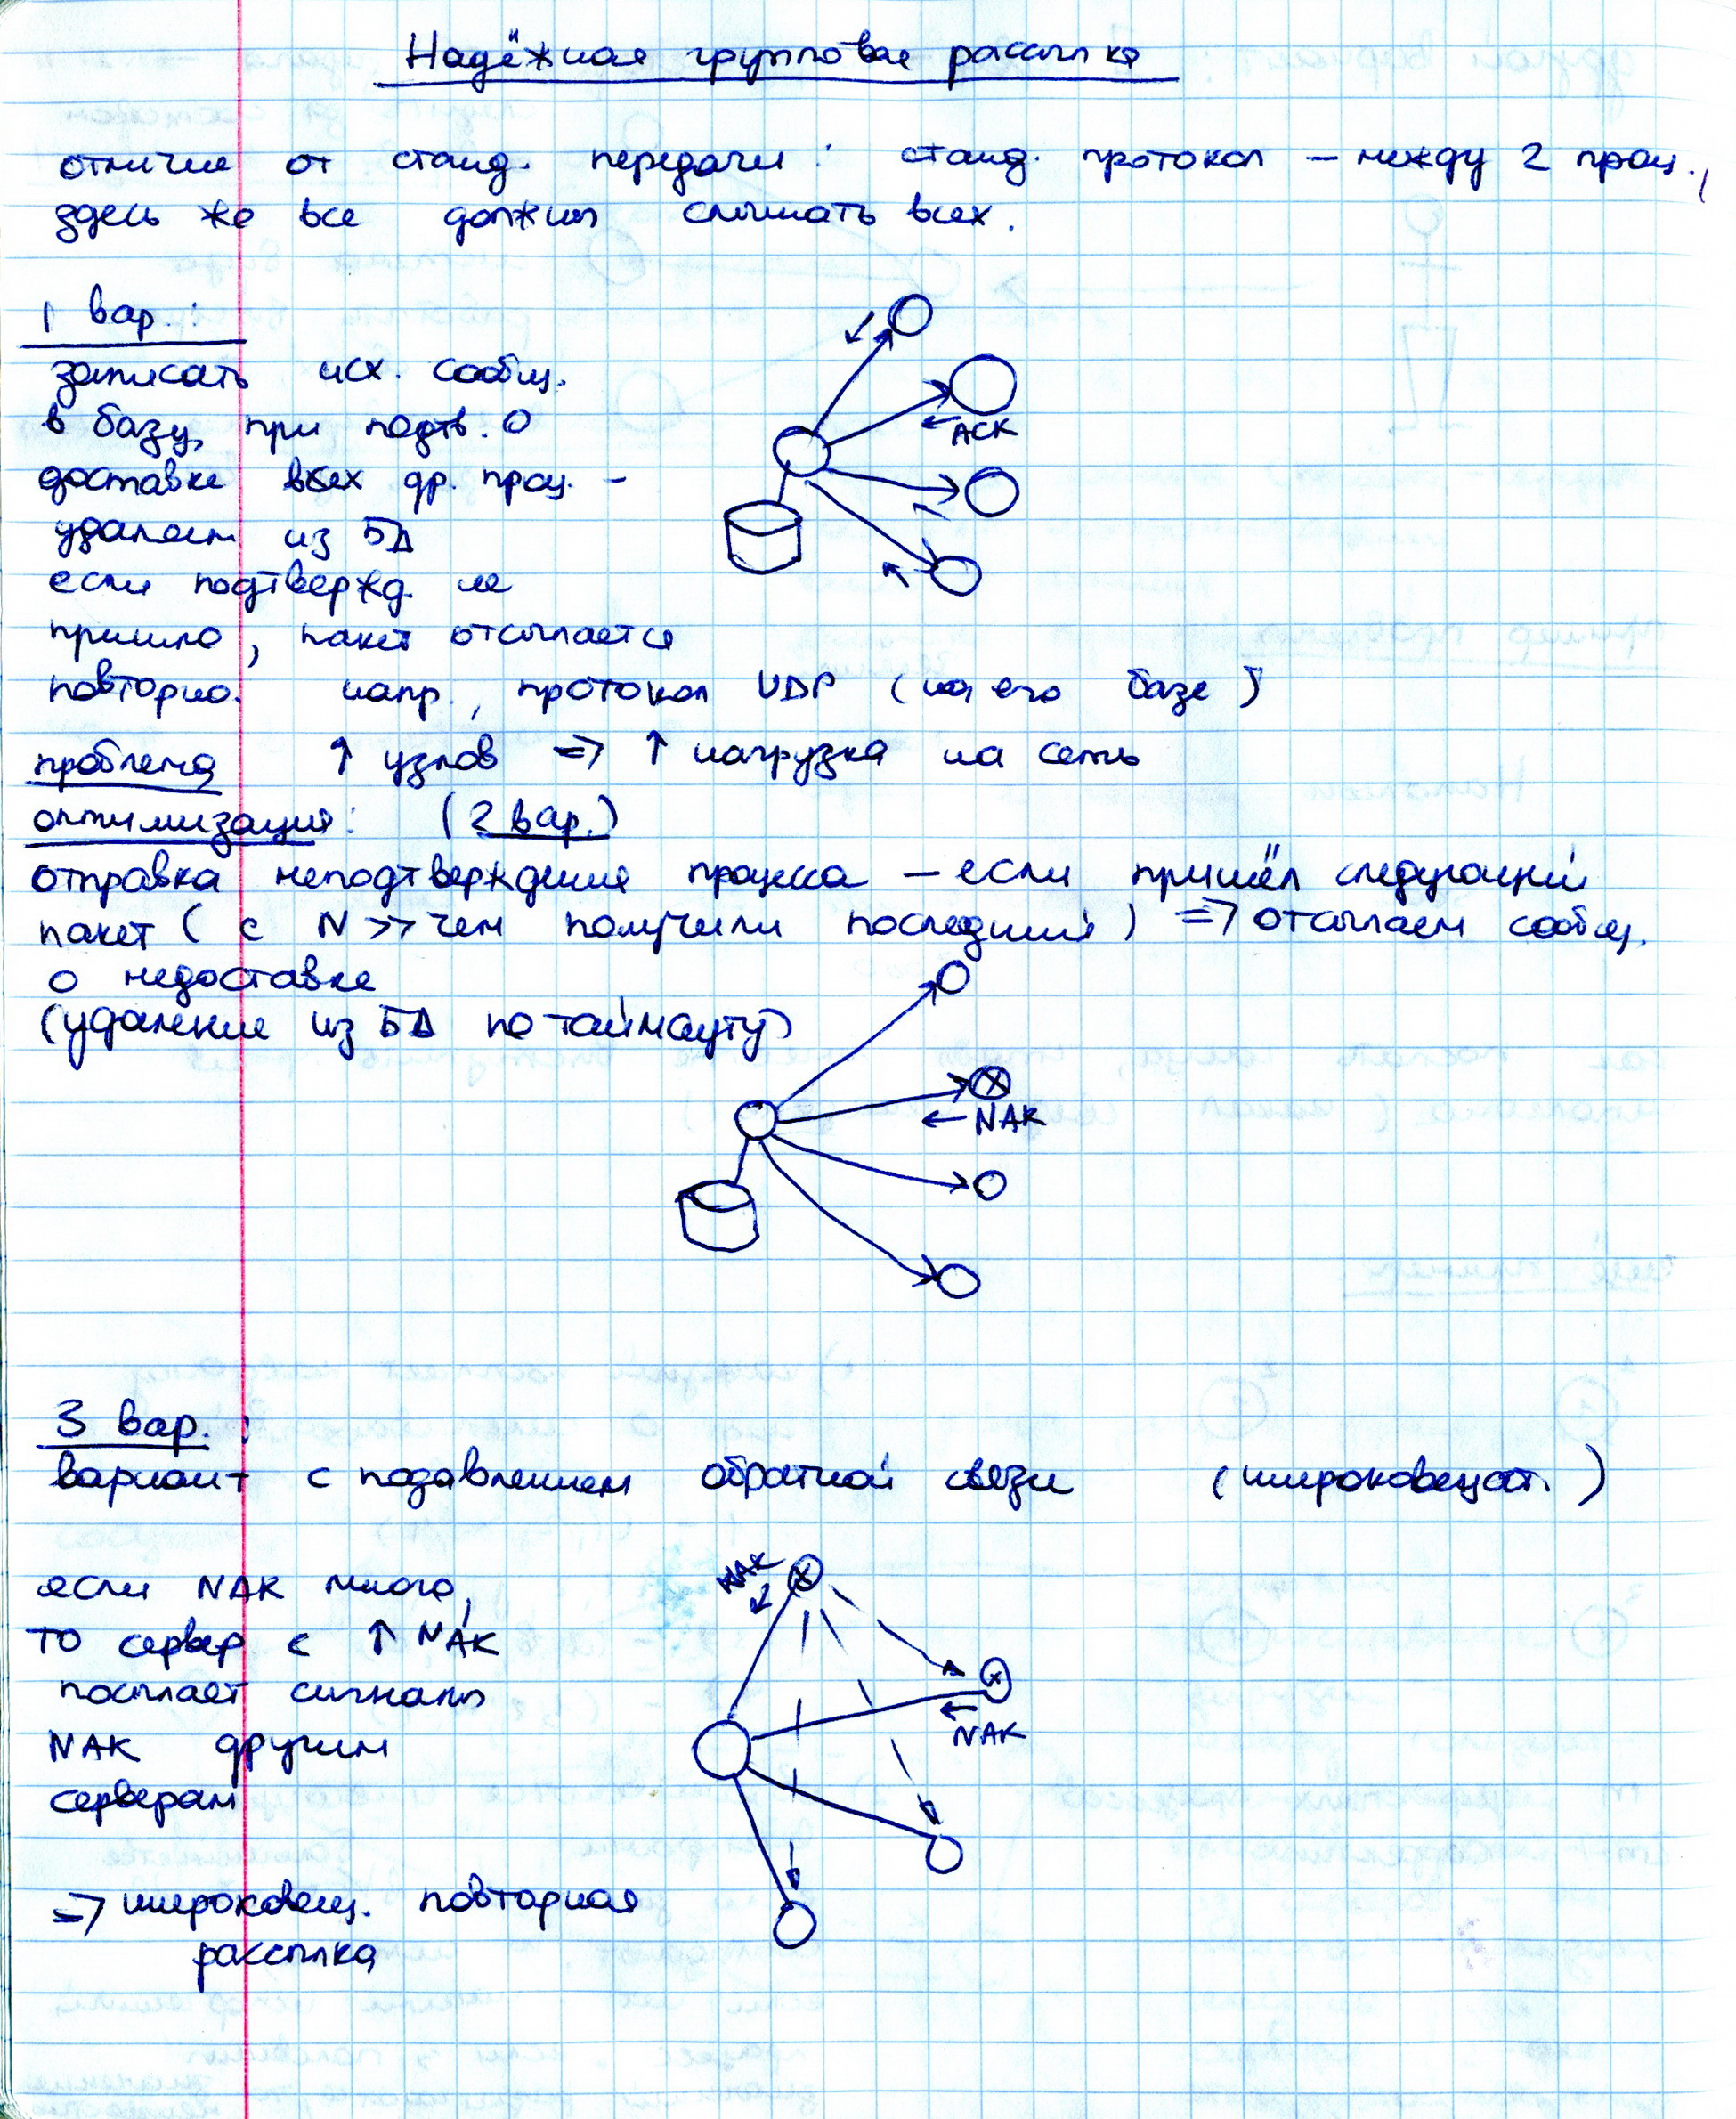 Надёжная групповая рассылка
отличие от станд. передачи: станд. протокол – между 2 проц.,
здесь же все должны слышать всех.
1 вар.:
записать исх. сообщ.
в базу, при подтв. о
доставке всех др. проц. –
удаляем из БД
если подтвержд. не
пришло, пакет отсылается
повторно. напр., протокол UDP (на его базе)
ACK
проблема ↑ узлов => ↑ нагрузка на сеть
оптимизация: (2 вар.)
отправка неподтверждения процесса – если пришёл следующий
пакет (с N >> чем получили последний) => отсылаем сообщ.
о недоставке
(удаление из БД по таймауту)
NAK
3 вар.:
вариант с подавлением обратной связи (широковещат.)
если NAK много,
то сервер с ↑ NAK
посылает сигналы
NAK другим
серверам
=> широковещ. повторная
рассылка
NAK
NAK